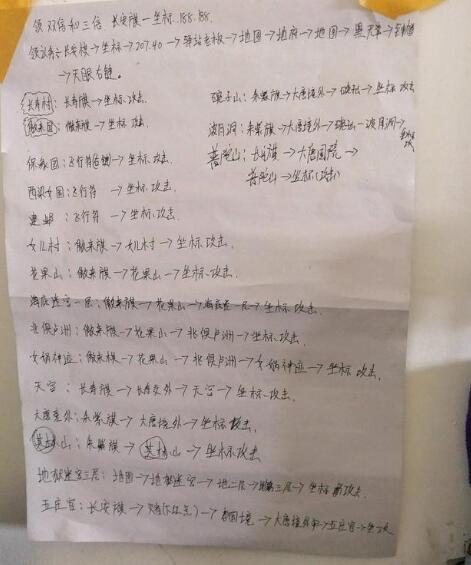 领双倍和三倍 长安旗一坐标.188.188.
领任务:长安旗→坐标→207.40→驿站老板→地图→地府→地图→黑无常→
→天眼右键。
长寿村:长寿旗→坐标.攻击.
傲来国:傲来旗→坐标.攻击
保泰国:飞行符右键→坐标.攻击.
西梁女国:飞行符→坐标.攻击.
建邺:飞行符→坐标.攻击.
女儿村:傲来旗→女儿村→坐标.攻击.
花果山:傲来旗→花果山→坐标.攻击.
海底迷宫一层:傲来旗→花果山→海底迷宫一层→坐标.攻击.
北俱卢洲:傲来旗→花果山→北俱卢洲→坐标.攻击.
女娲神迹:傲来旗→花果山→北俱卢洲→女娲神迹→坐标.攻击.
天宫:长寿旗→长寿郊外→天宫→坐标.攻击.
大唐境外:朱紫旗→大唐境外→坐标攻击.
山:朱紫旗→山→坐标攻击
地狱迷宫三层:地图→地狱迷宫→地二层→三层→坐标攻击.
五庄观:长安旗→→国境→大唐境外→五庄观→坐攻
碗子山:朱紫旗→大唐境外→碗子山→坐标 攻击
波月洞:朱紫旗→大唐境外→碗子山→波月洞→坐标攻
普陀山:长安旗→大唐国境→
普陀山→坐标(攻击)